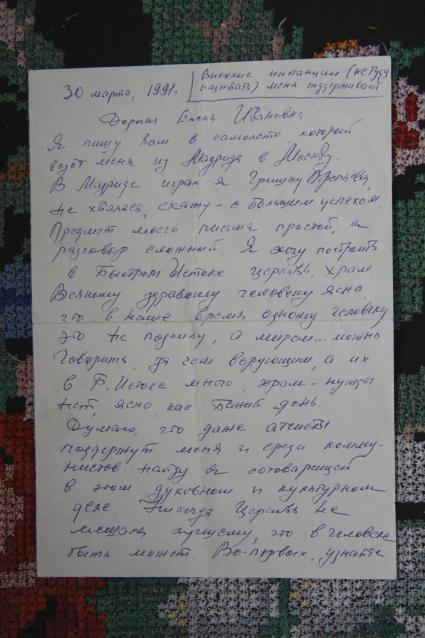 30 марта, 1991г.
Высокие инстанции (не буду
называть) меня поддерживают
Дорогая Елена Ивановна.
Я пишу Вам в самолёте который
везёт меня из Мадрида в Москву.
В Мадриде играл я Гришку
не хвалясь, скажу - с большим успехом.
Предмет моего письма простой, а
разговор сложный. Я хочу построить
в Быстром Истоке церковь, храм.
Всякому здравому человеку ясно,
что в наше время одному человеку
это не поднять, а миром... можно
Говорить, зачем верующим, а их
в Б. Истоке много, храм - нужды
нет, ясно, как Божий день.
Думаю, что даже атеисты
поддержут меня и среди комму-
нистов найду я сотоварищей
в этом духовном и культурном
деле. Никогда Церковь не
мешала лучшему, что в человеке
быть может Во-первых, узнайте